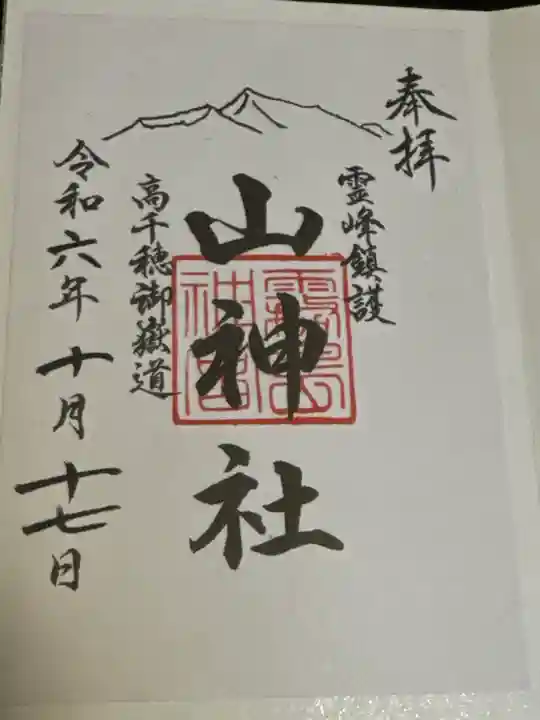 奉拝
霊峰鎮護
山神社
霧島神宮
高千穂御嶽道
令和六年十月十七日